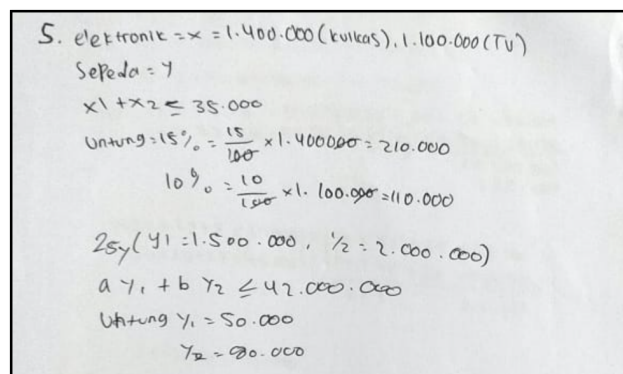 5. elektronik = x = 1.400.000 (kulkas), 1.100.000 (TV)
Sepeda = y
x1 + x2 ≤ 35.000
Untung = 15% = 15/100 x 1.400000 = 210.000
10% = 10/100 x 1.100.000 = 110.000
25y (y1 = 1.500.000, y2 = 2.000.000)
a y1 + b y2 ≤ 42.000.000
Untung y1 = 50.000
y2 = 80.000